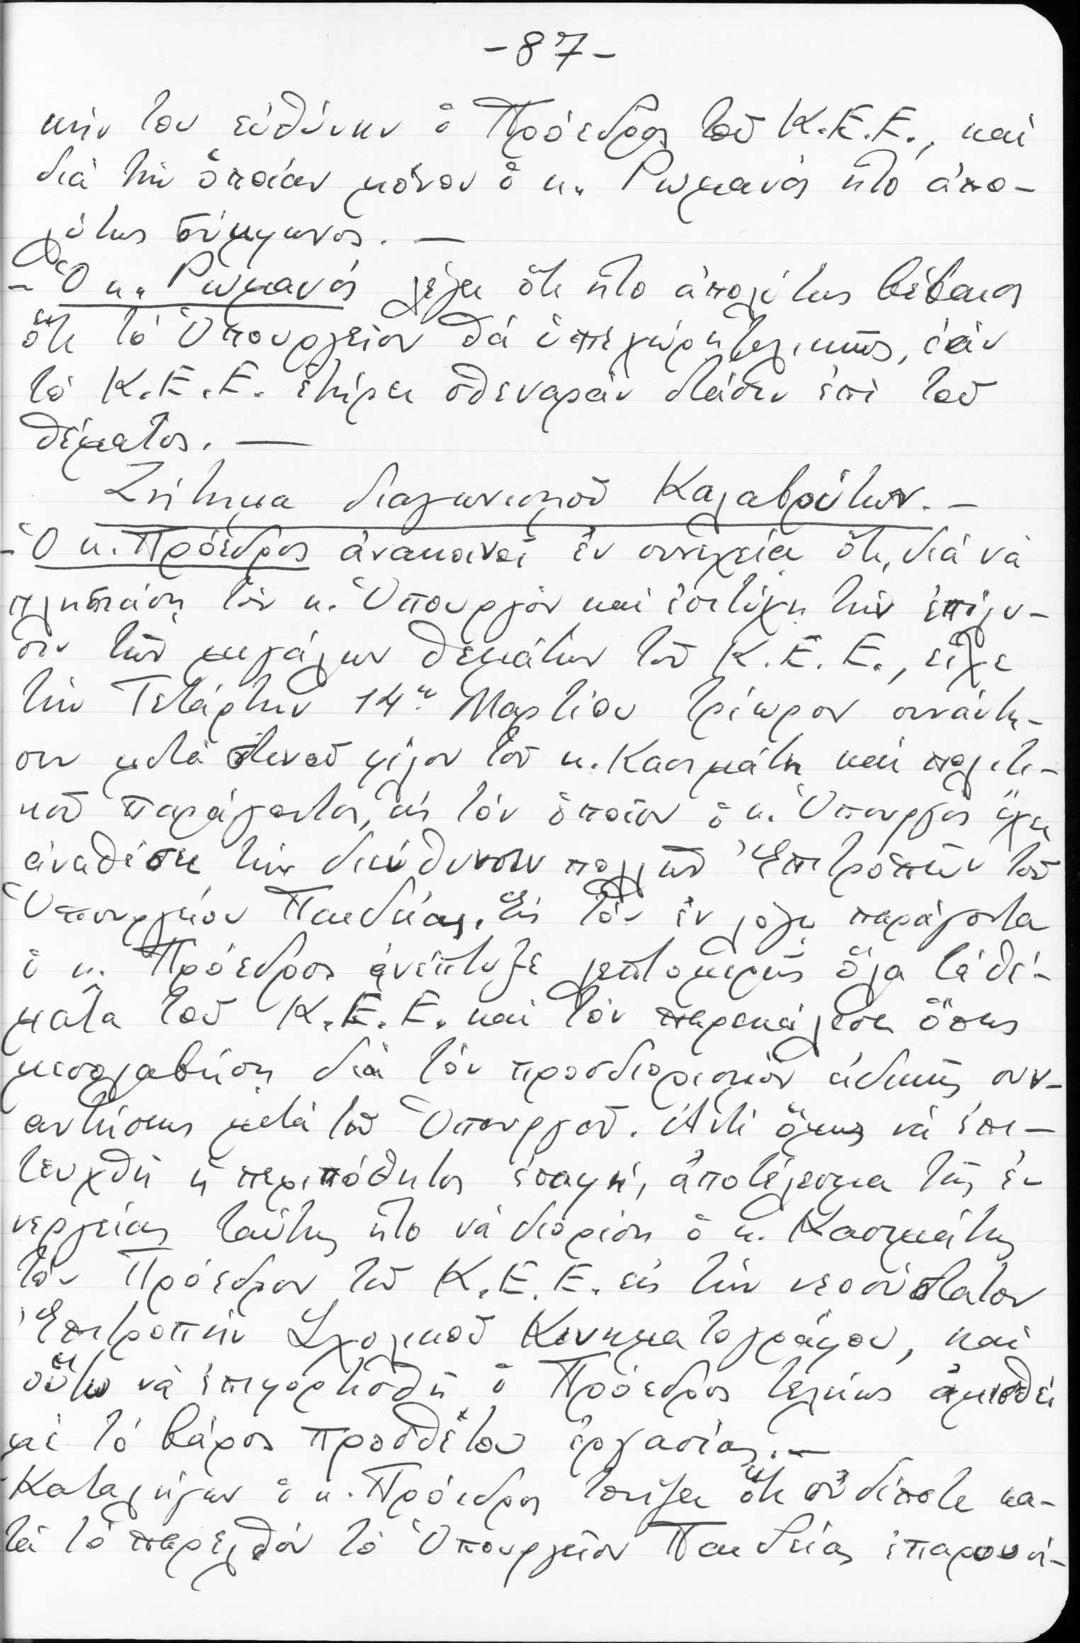 -87-
κήν του εὐθύνην ὁ Πρόεδρος τοῦ Κ.Ε.Ε., καί
διά τήν ὁποίαν μόνον ὁ κ. Ρωμανός ἦτο ἀπο-
λύτως σύμφωνος. —
- Ὁ κ. Ρωμανός λέγει ὅτι ἦτο ἀπολύτως βέβαιος
ὅτι τό Ὑπουργεῖον θά ὑπεχώρει τελικῶς, ἐάν
τό Κ.Ε.Ε. ἐτήρει σθεναράν στάσιν ἐπί τοῦ
θέματος. —
Ζήτημα διαγωνισμοῦ Καλαβρύτων. -
- Ὁ κ. Πρόεδρος ἀνακοινοῖ ἐν συνεχείᾳ ὅτι, διά νά
πλησιάσῃ τόν κ. Ὑπουργόν καί ἐπιτύχῃ τήν ἐπίλυ-
σιν τῶν μεγάλων θεμάτων τοῦ Κ.Ε.Ε., εἶχε
τήν Τετάρτην 14ην Μαρτίου τρίωρον συνάντη-
σιν μετά στενοῦ φίλου τοῦ κ. Κασιμάτη καί πολιτι-
κοῦ παράγοντος, εἰς τόν ὁποῖον ὁ κ. Ὑπουργός ἔχει
ἀναθέσει τήν διεύθυνσιν πολλῶν Ἐπιτροπῶν τοῦ
Ὑπουργείου Παιδείας. Εἰς τόν ἐν λόγῳ παράγοντα
ὁ κ. Πρόεδρος ἀνέπτυξε λεπτομερῶς ὅλα τά θέ-
ματα τοῦ Κ.Ε.Ε. καί τόν παρεκάλεσε ὅπως
μεσολαβήσῃ διά τόν προσδιορισμόν εἰδικῆς συν-
αντήσεως μετά τοῦ Ὑπουργοῦ. Ἀντί ὅμως νά ἐπι-
τευχθῇ ἡ περιπόθητος ἐπαφή, ἀποτέλεσμα τῆς ἐ-
νεργείας ταύτης ἦτο νά διορίσῃ ὁ κ. Κασιμάτης
τόν Πρόεδρον τοῦ Κ.Ε.Ε. εἰς τήν νεοσύστατον
Ἐπιτροπήν Σχολικοῦ Κινηματογράφου, καί
οὕτω νά ἐπιφορτισθῇ ὁ Πρόεδρος τελείως ἀμισθεί
μέ τό βάρος προσθέτου ἐργασίας. —
Καταλήγων ὁ κ. Πρόεδρος τονίζει ὅτι οὐδέποτε κα-
τά τό παρελθόν τό Ὑπουργεῖον Παιδείας ἐπαρουσί-